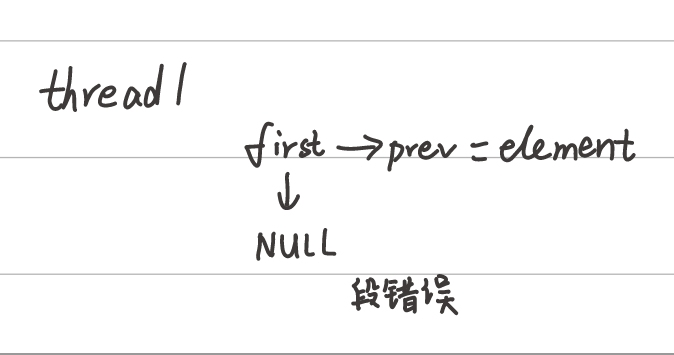 thread1
first → prev = element
↓
NULL
段错误